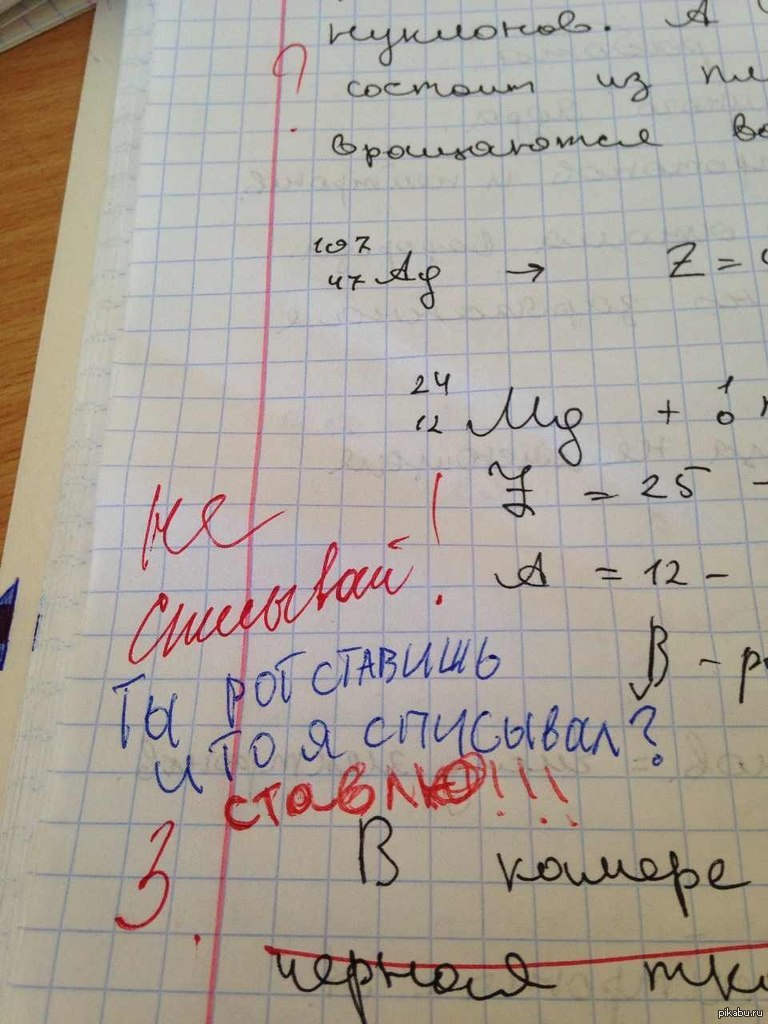 нуклонов. А
?
состоит из
вращаются
107
47 Ag → Z =
24
12 Mg + 1
0
Z = 25 -
A = 12 -
не
списывай!
B -
ты рот ставишь
что я списывал?
ставлю!!!
3.
В камере
черная
pikabu.ru